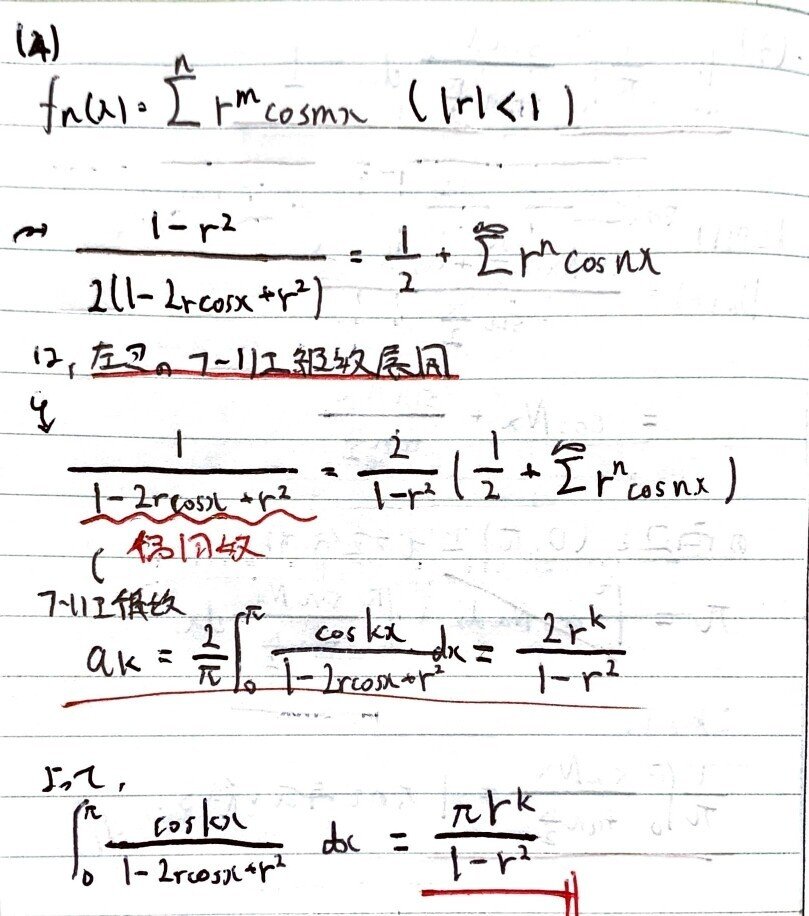 (4)
fn(x) = Σ^n r^m cosmx (|r| < 1)
→ (1 - r²) / (2(1 - 2rcosx + r²)) = 1/2 + Σ^∞ r^n cos nx
は, 左辺の フーリエ級数展開
↓
1 / (1 - 2rcosx + r²) = 2 / (1 - r²) (1/2 + Σ^∞ r^n cosnx)
偶関数
フーリエ係数
ak = 2/π ∫₀^π coskx / (1 - 2rcosx + r²) dx = 2r^k / (1 - r²)
よって,
∫₀^π coskx / (1 - 2rcosx + r²) dx = πr^k / (1 - r²)